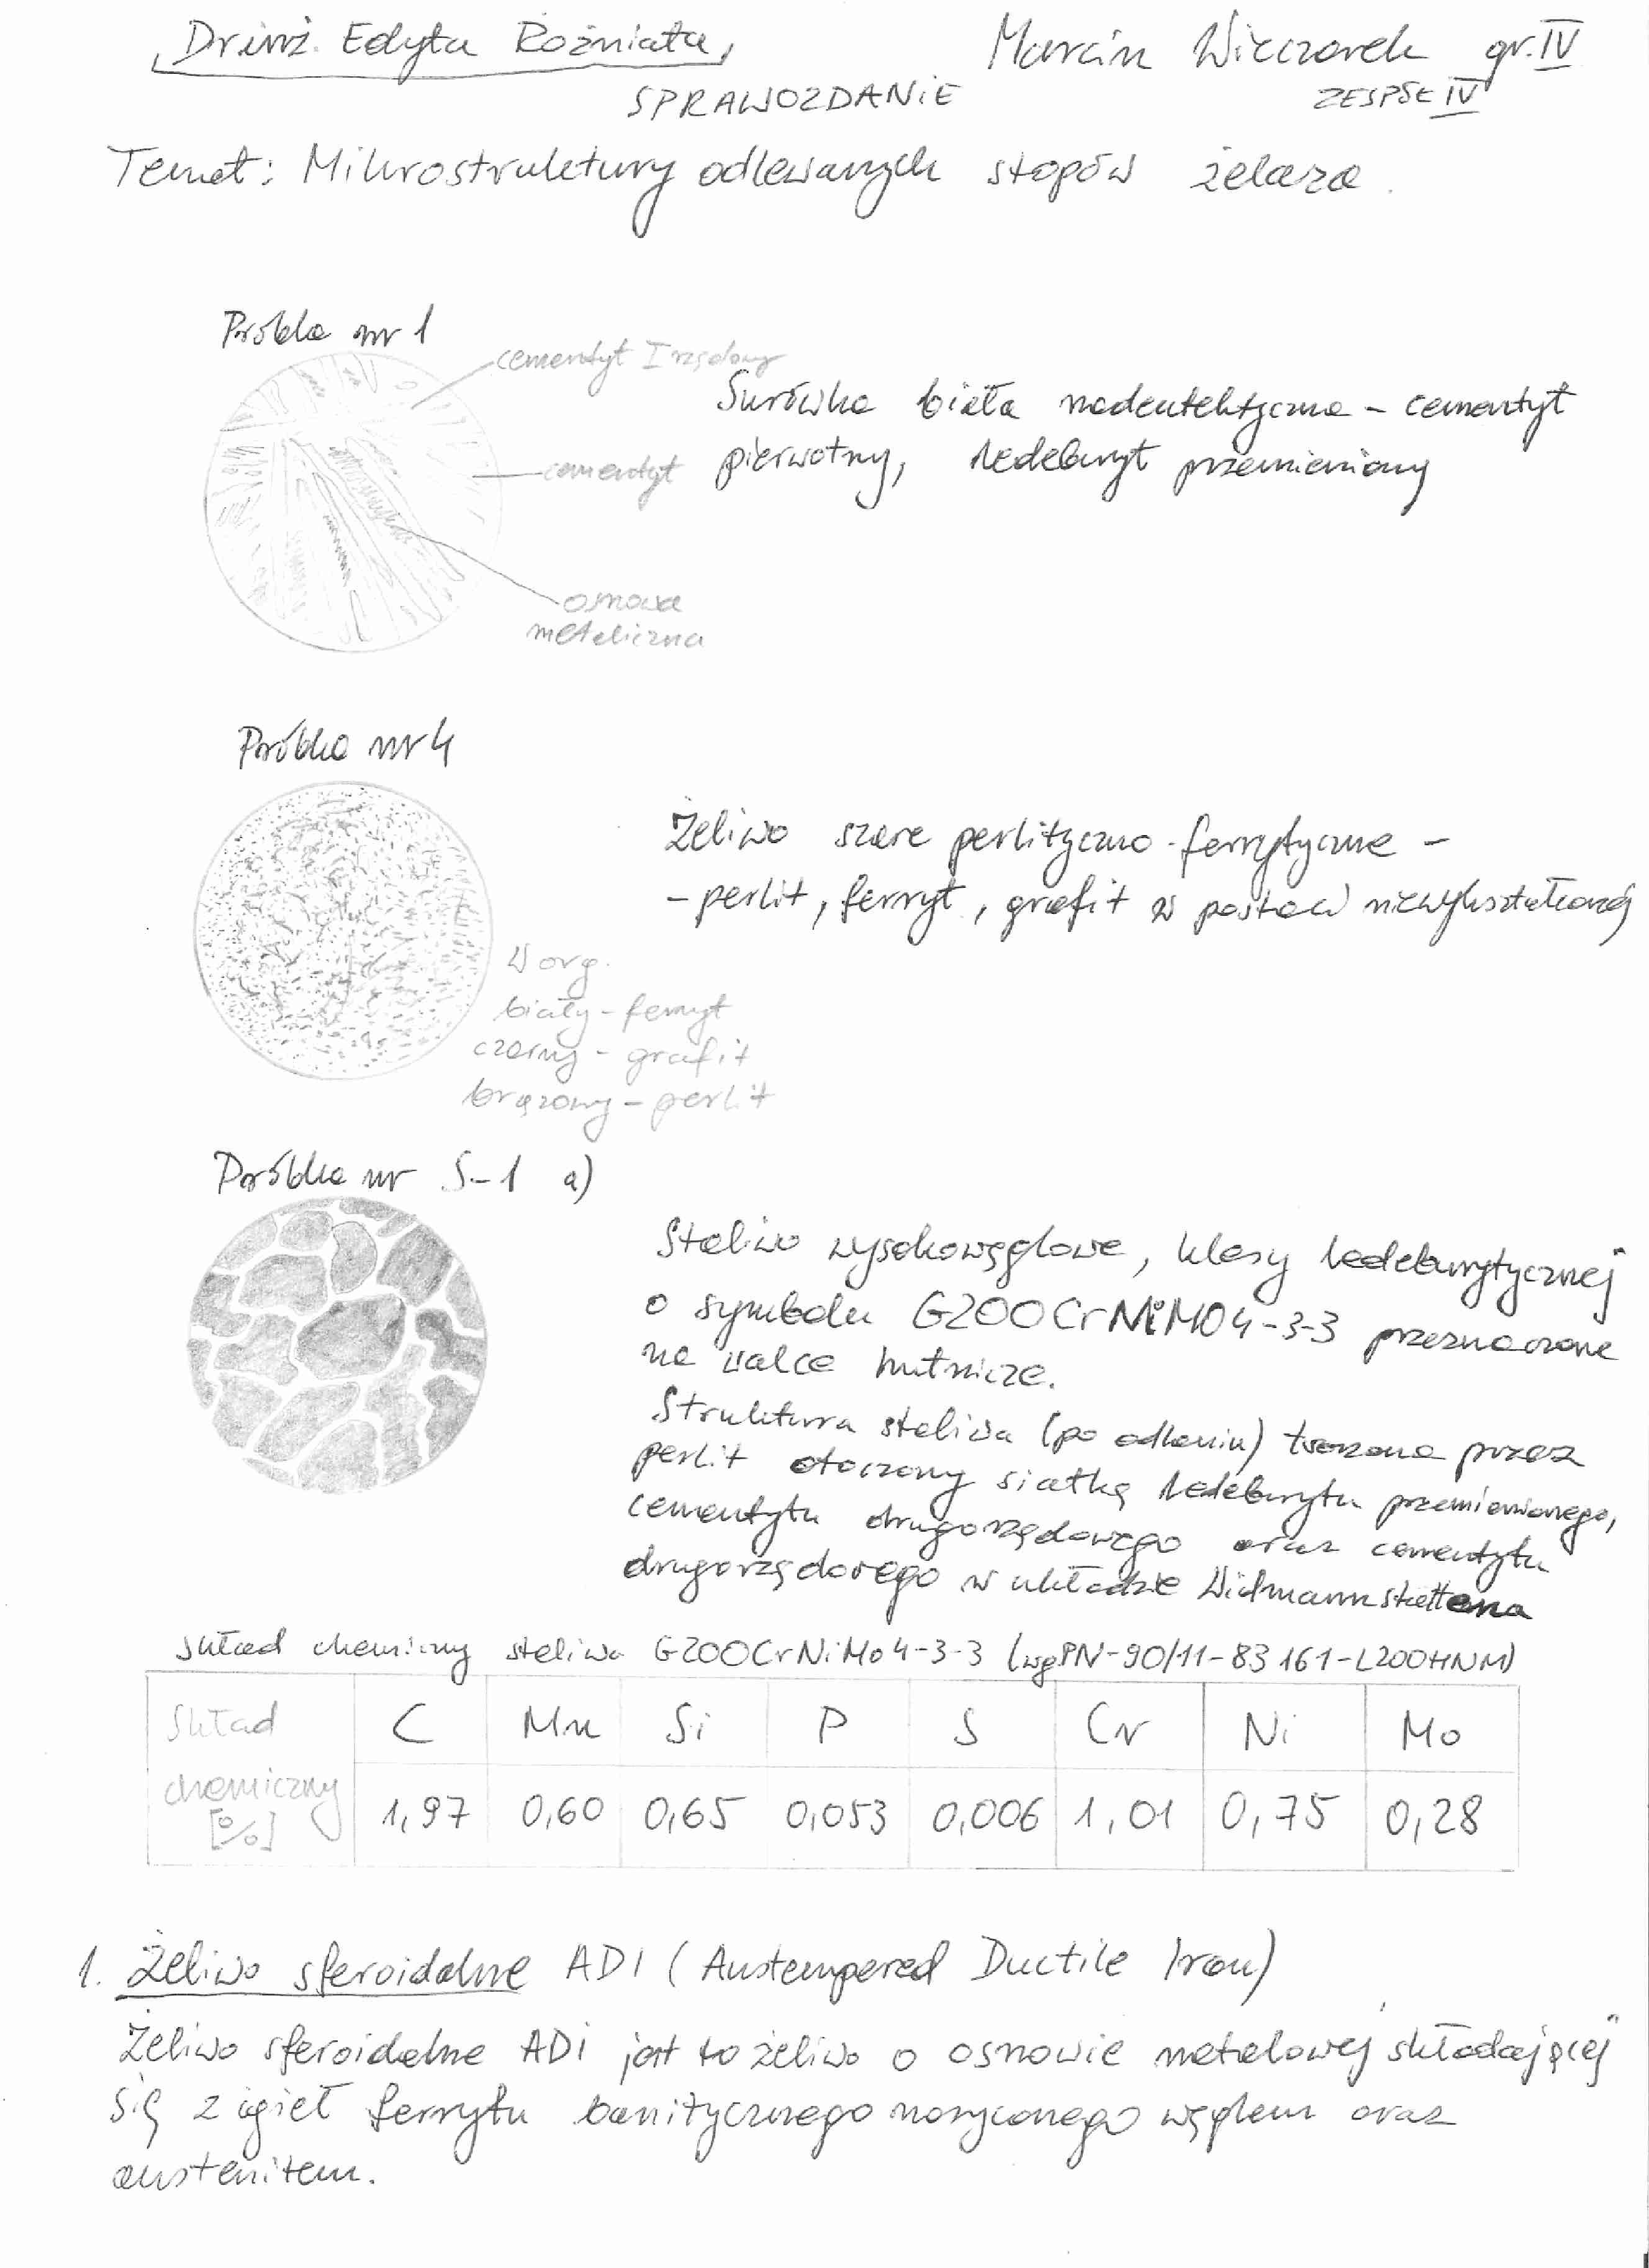 Dr inż. Edyta Rożniata
Marcin Wieczorek gr. IV
SPRAWOZDANIE
ZESPÓŁ IV
Temat: Mikrostruktury odlewanych stopów żelaza.
Próbka nr 1
cementyt I rzędowy
Surówka biała nadeutektyczna - cementyt
pierwotny, ledeburyt przemieniony
cementyt
osnowa
metaliczna
Próbka nr 4
Żeliwo szare perlityczno-ferrytyczne -
- perlit, ferryt, grafit w postaci niewykształconej
W org.
biały - ferryt
czarny - grafit
brązowy - perlit
Próbka nr S-1 a)
Staliwo wysokowęglowe, klasy ledeburytycznej
o symbolu G200CrNiMO4-3-3 przeznaczone
na walce hutnicze.
Struktura staliwa (po odlaniu) tworzona przez
perlit otoczony siatką ledeburytu przemienionego,
cementytu drugorzędowego oraz cementytu
drugorzędowego w układzie Widmannstattena
skład chemiczny staliwa G200CrNiMo4-3-3 (wg PN-90/H-83161-L200HNM)
Skład chemiczny [%]
C Mn Si P S Cr Ni Mo
1,97 0,60 0,65 0,053 0,006 1,01 0,75 0,28
1. Żeliwo sferoidalne ADI (Austempered Ductile Iron)
Żeliwo sferoidalne ADI jest to żeliwo o osnowie metalowej składającej
się z igieł ferrytu banitycznego nasyconego węglem oraz
austenitem.